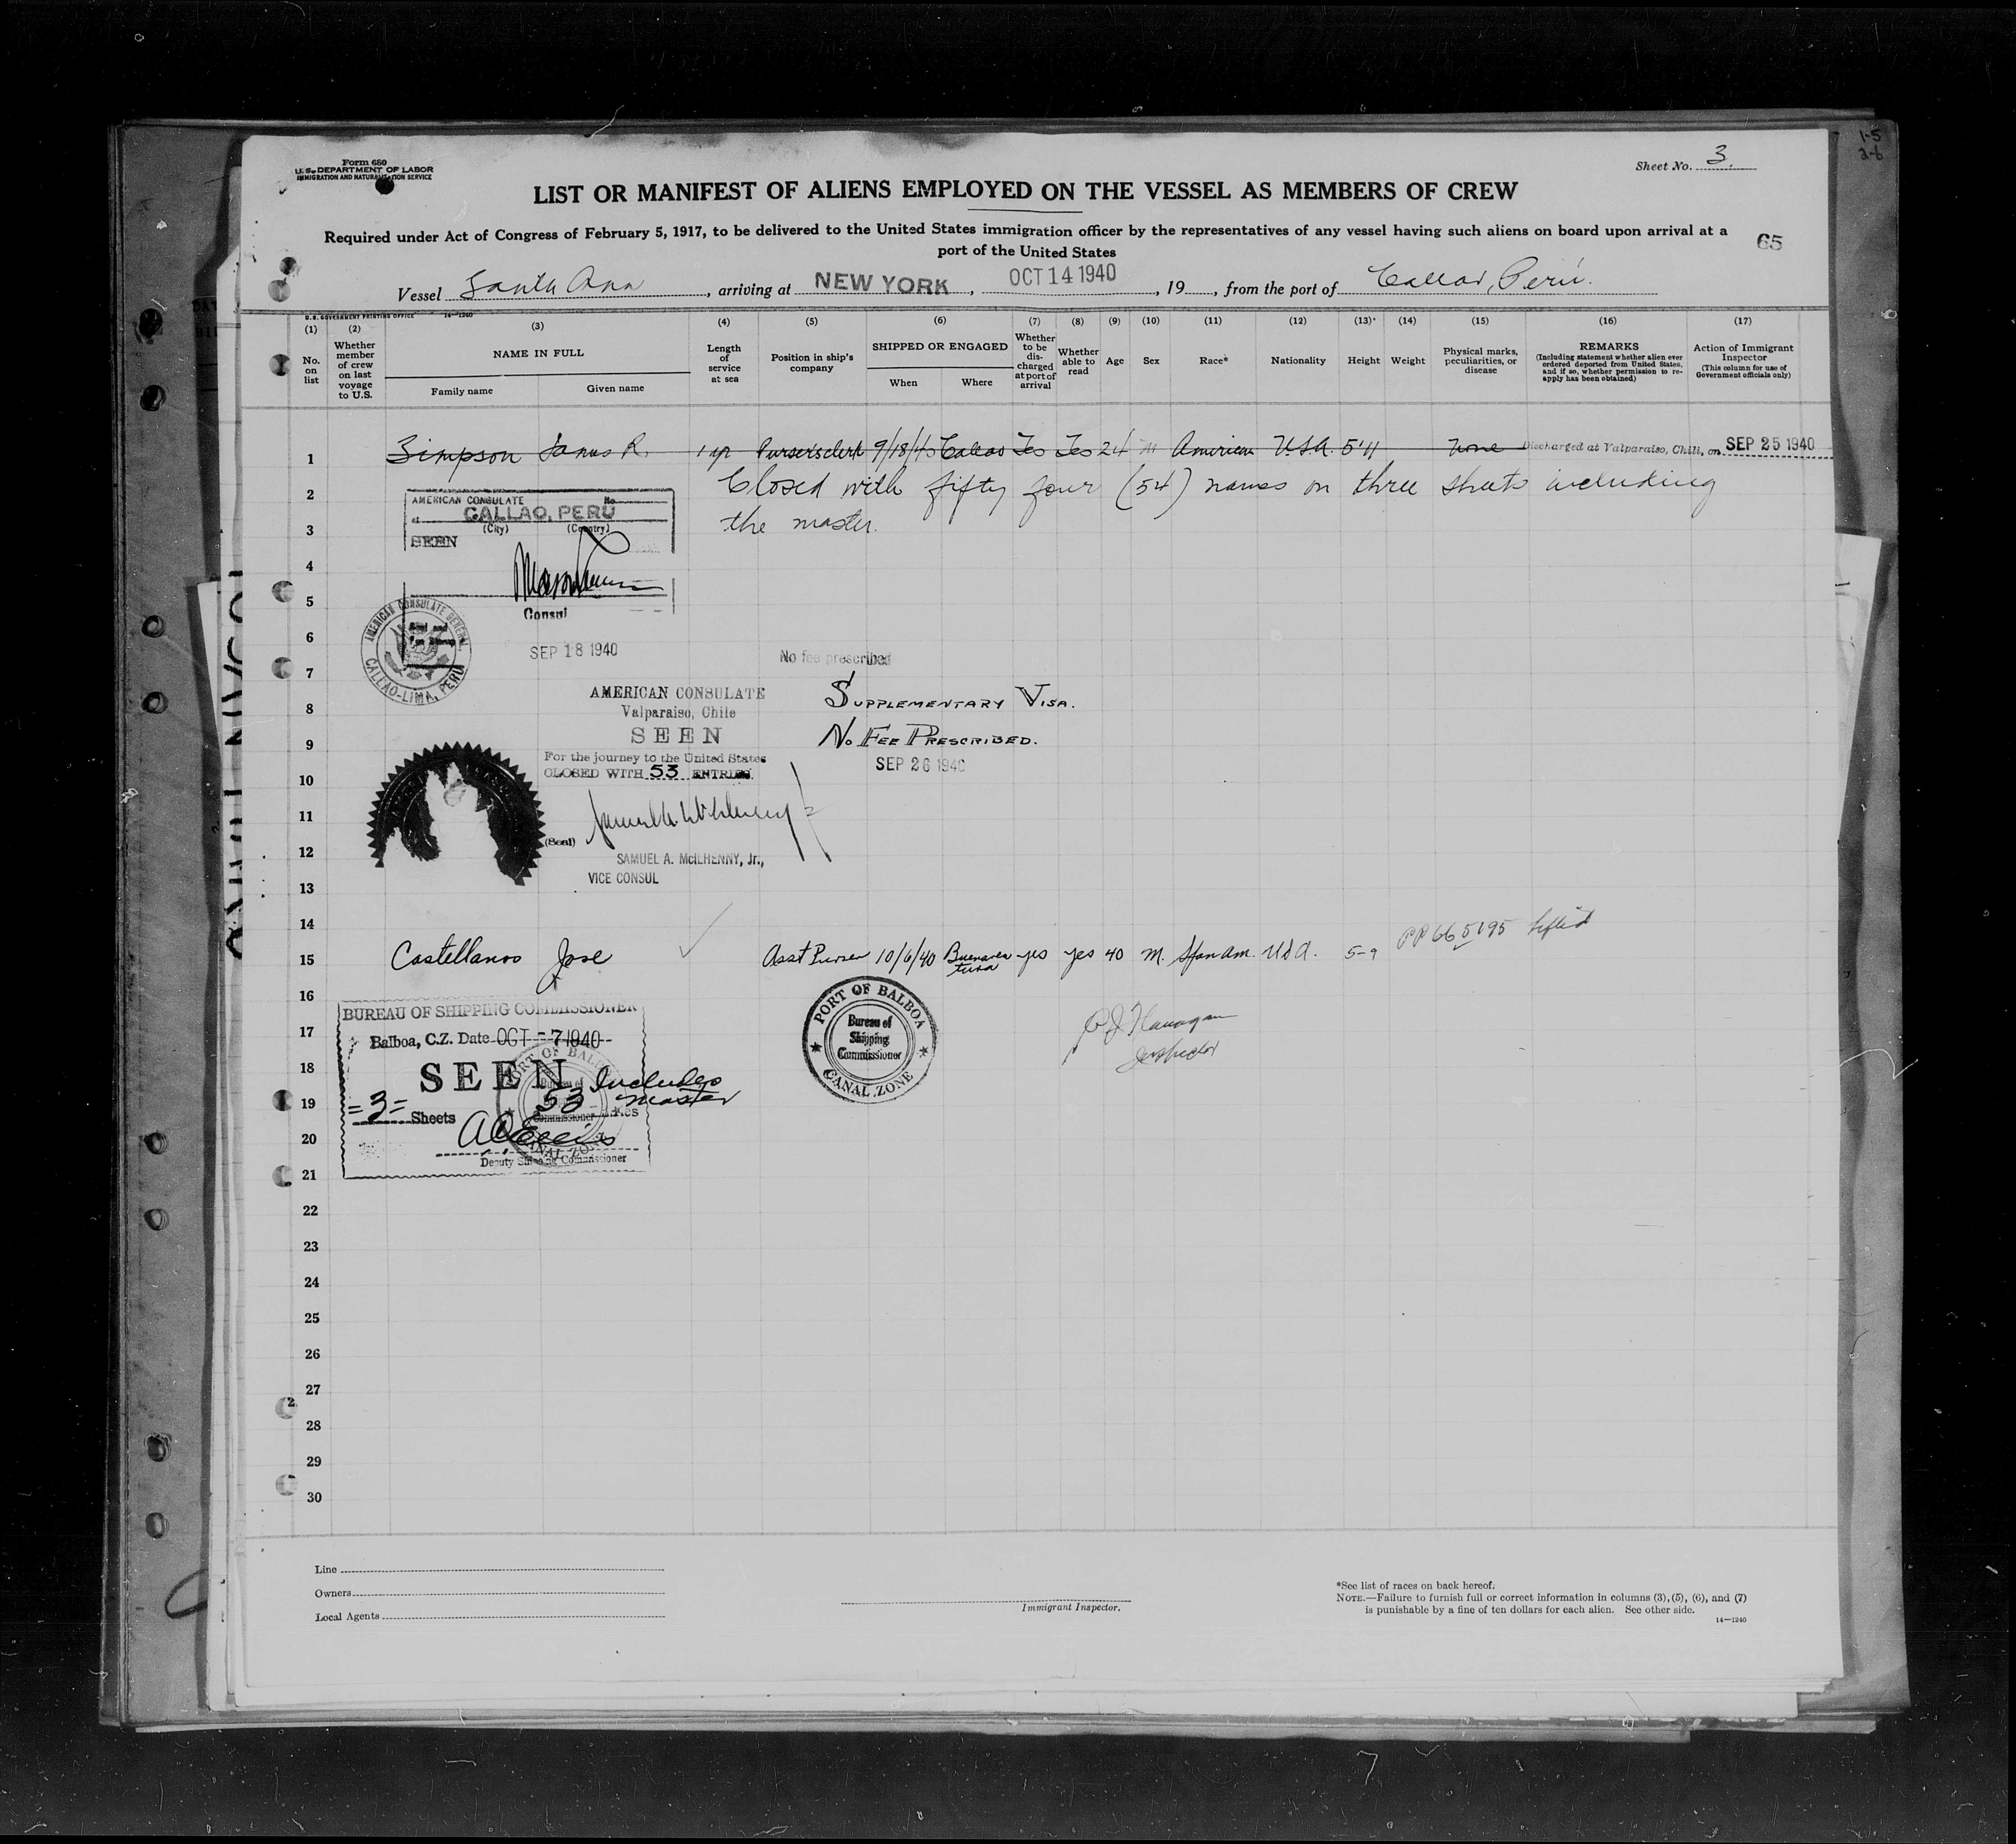 1-5
2-6
Form 680
U. S. DEPARTMENT OF LABOR
IMMIGRATION AND NATURALIZATION SERVICE
Sheet No. 3.
LIST OR MANIFEST OF ALIENS EMPLOYED ON THE VESSEL AS MEMBERS OF CREW
Required under Act of Congress of February 5, 1917, to be delivered to the United States immigration officer by the representatives of any vessel having such aliens on board upon arrival at a
port of the United States
65
Vessel Santa Ana, arriving at NEW YORK, OCT 14 1940, 19, from the port of Callao, Perú.
U. S. GOVERNMENT PRINTING OFFICE 14—1240
(1) (2) (3) (4) (5) (6) (7) (8) (9) (10) (11) (12) (13)* (14) (15) (16) (17)
No. on list
Whether member of crew on last voyage to U.S.
NAME IN FULL
Family name Given name
Length of service at sea
Position in ship's company
SHIPPED OR ENGAGED
When Where
Whether to be discharged at port of arrival
Whether able to read
Age
Sex
Race*
Nationality
Height
Weight
Physical marks, peculiarities, or disease
REMARKS
(Including statement whether alien ever ordered deported from United States, and if so, whether permission to reapply has been obtained)
Action of Immigrant Inspector
(This column for use of Government officials only)
1 Simpson James R. 1 yr Purser's clerk 9/18/40 Callao Yes Yes 24 M American USA. 5'11 None Discharged at Valparaiso, Chili, on SEP 25 1940
2 Closed with fifty four (54) names on three sheets including
3 the master.
AMERICAN CONSULATE No.
at CALLAO, PERU
(City) (Country)
SEEN
4
5
Consul
AMERICAN CONSULATE GENERAL
CALLAO-LIMA, PERU
6
SEP 18 1940
No fee prescribed
7
AMERICAN CONSULATE
Valparaiso, Chile
SEEN
SUPPLEMENTARY VISA.
8
NO FEE PRESCRIBED.
9
For the journey to the United States
CLOSED WITH 53 ENTRIES.
SEP 26 1940
10
11
(Seal)
12
SAMUEL A. McILHENNY, Jr.,
VICE CONSUL
13
14
PP 665195 lifted
15 Castellanos Jose Asst Purser 10/6/40 Buenaventura yes yes 40 M. Span Am. USA. 5-9
16
BUREAU OF SHIPPING COMMISSIONER
17
Balboa, C.Z. Date OCT -7 1940
PORT OF BALBOA
Bureau of
Shipping
Commissioner
CANAL ZONE
Inspector
18
SEEN
Includes
master
19
=3= Sheets 53
20
Deputy Shipping Commissioner
21
22
23
24
25
26
27
28
29
30
Line
Owners
Local Agents
Immigrant Inspector.
*See list of races on back hereof.
NOTE.—Failure to furnish full or correct information in columns (3), (5), (6), and (7)
is punishable by a fine of ten dollars for each alien. See other side.
14—1240